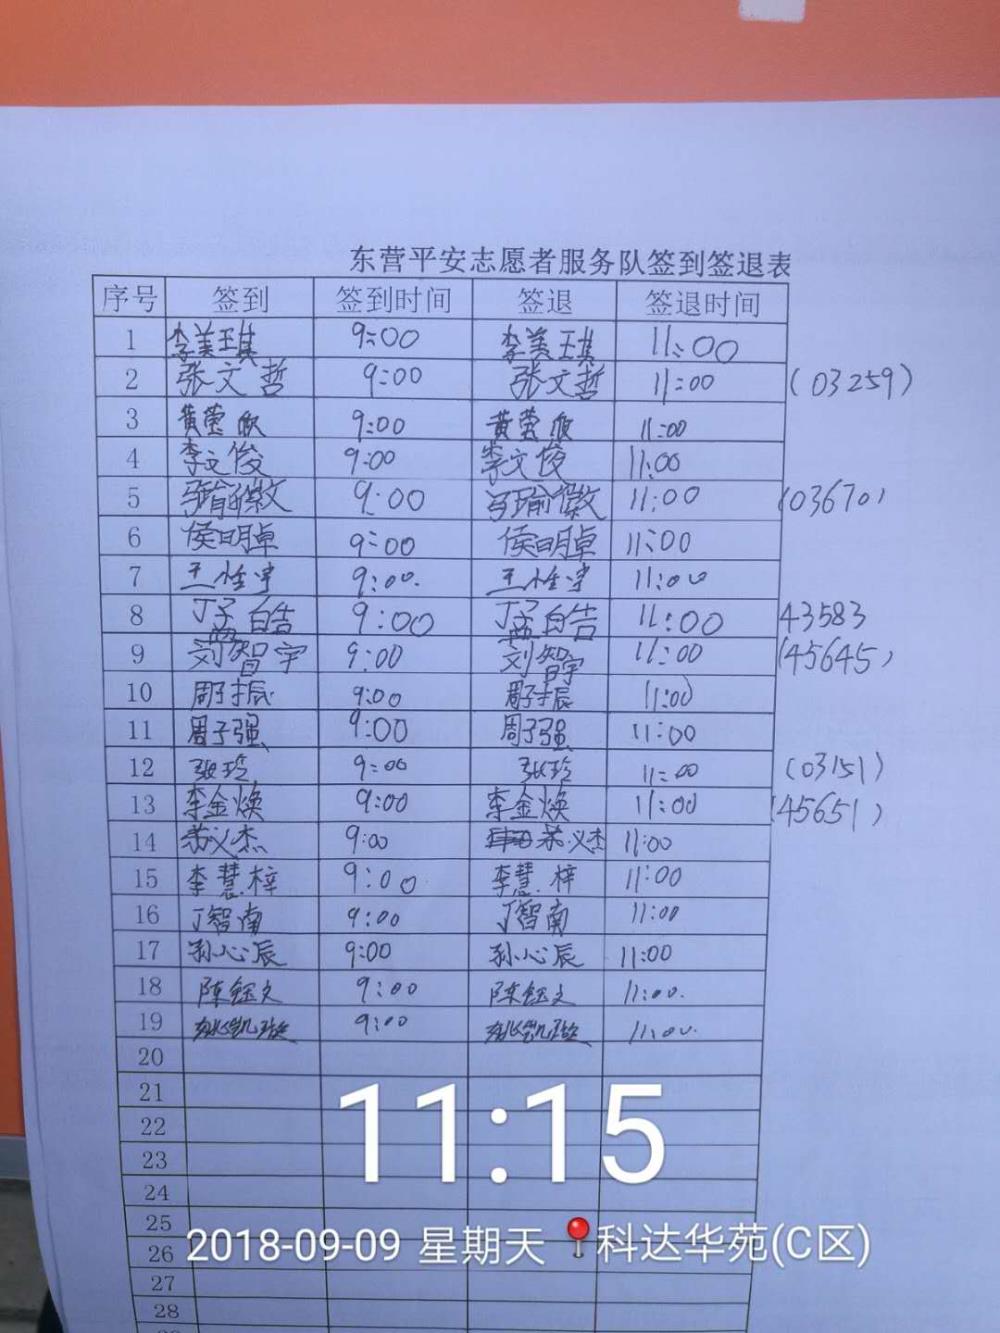 东营平安志愿者服务队签到签退表
序号 签到 签到时间 签退 签退时间
1 李美琪 9:00 李美琪 11:00
2 张文哲 9:00 张文哲 11:00 (03259)
3 黄莹欣 9:00 黄莹欣 11:00
4 李文俊 9:00 李文俊 11:00
5 9:00 11:00 (03670)
6 侯明卓 9:00 侯明卓 11:00
7 9:00. 11:00
8 丁孟皓 9:00 丁孟皓 11:00 43583
9 刘智宇 9:00 刘智宇 11:00 (45645)
10 周子振 9:00 周子振 11:00
11 周子强 9:00 周子强 11:00
12 张玲 9:00 张玲 11:00 (03151)
13 李金焕 9:00 李金焕 11:00 (45651)
14 苏义杰 9:00 苏义杰 11:00
15 李慧梓 9:00 李慧梓 11:00
16 丁智南 9:00 丁智南 11:00
17 孙心辰 9:00 孙心辰 11:00
18 陈钰文 9:00 陈钰文 11:00.
19 姚凯璇 9:00 姚凯璇 11:00.
20
21
11:15
22
23
24
25
2018-09-09 星期天 科达华苑(C区)
26
27
28